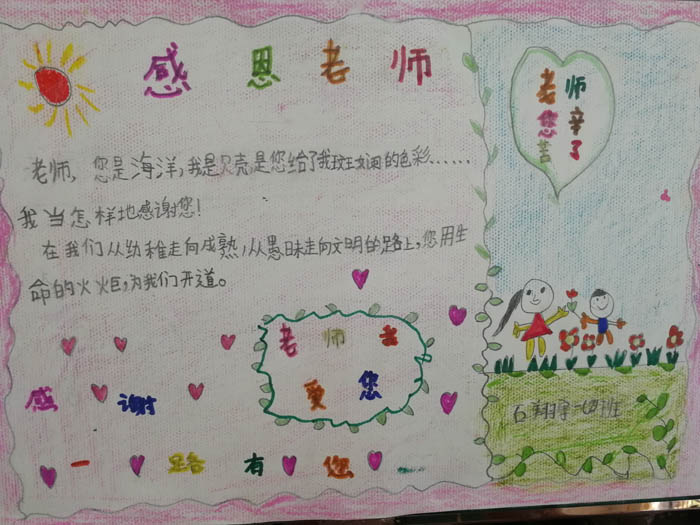 感恩老师
老师,您是海洋,我是贝壳,是您给了我斑斓的色彩……
我当怎样地感谢您!
在我们从幼稚走向成熟,从愚昧走向文明的路上,您用生
命的火炬,为我们开道。
老师
爱您
感谢
一路有您
老师
您辛
苦了
石翔宇一四班